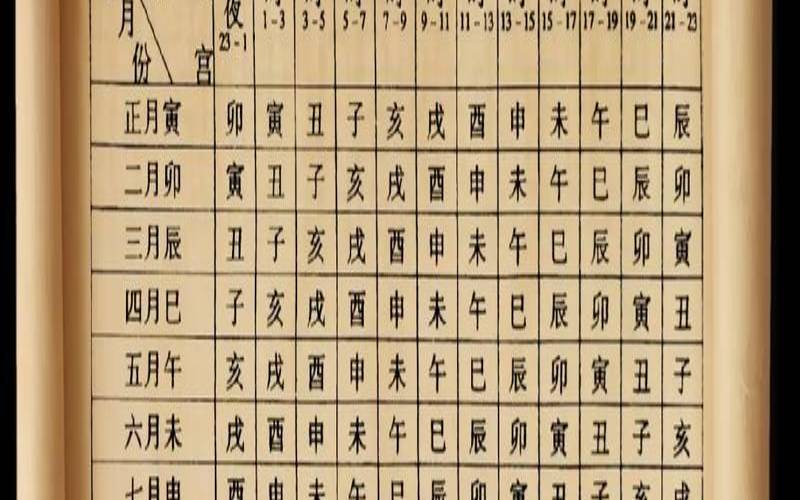 月 夜
23-1 1-3 3-5 5-7 7-9 9-11 11-13 13-15 15-17 17-19 19-21 21-23
份 宫
正月寅 卯 寅 丑 子 亥 戌 酉 申 未 午 巳 辰
二月卯 寅 丑 子 亥 戌 酉 申 未 午 巳 辰 卯
三月辰 丑 子 亥 戌 酉 申 未 午 巳 辰 卯 寅
四月巳 子 亥 戌 酉 申 未 午 巳 辰 卯 寅 丑
五月午 亥 戌 酉 申 未 午 巳 辰 卯 寅 丑 子
六月未 戌 酉 申 未 午 巳 辰 卯 寅 丑 子 亥
七月申 酉 申 未 午 巳 辰 卯 寅 丑 子 亥 戌